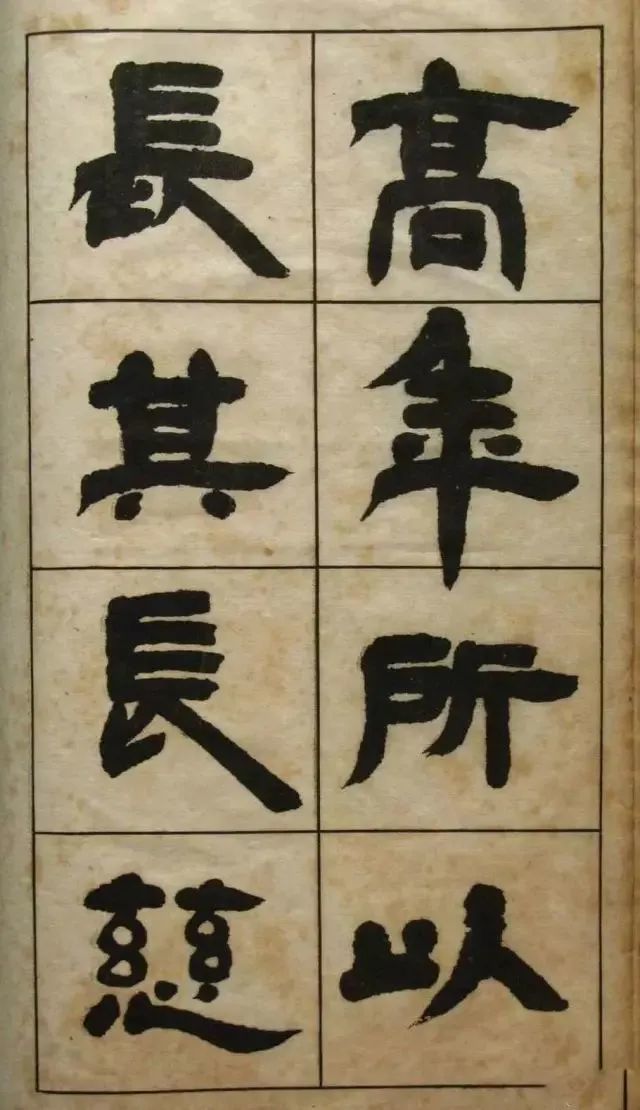 高年所以
長其長慈